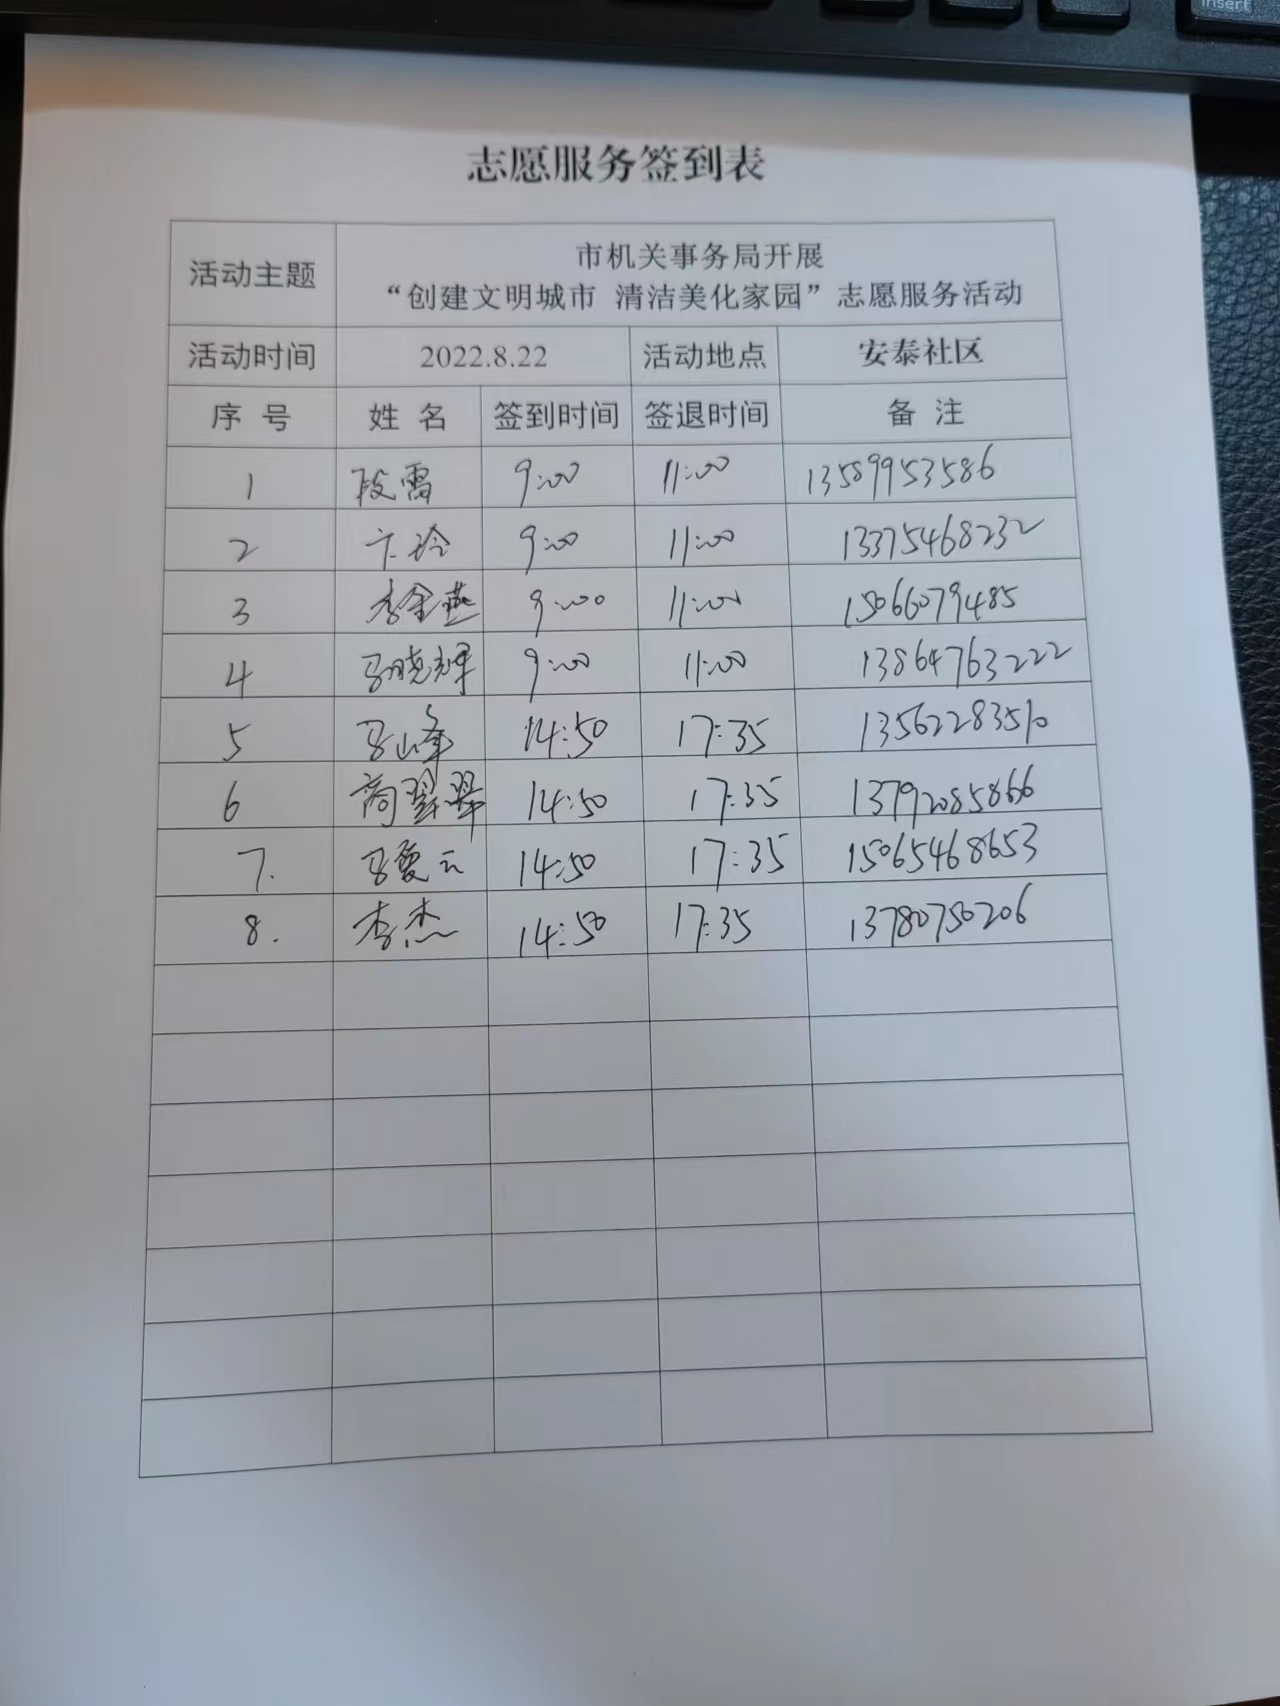 insert
志愿服务签到表
活动主题 市机关事务局开展
“创建文明城市 清洁美化家园”志愿服务活动
活动时间 2022.8.22 活动地点 安泰社区
序号 姓名 签到时间 签退时间 备注
1 段雷 9:00 11:00 13589953586
2 卞玲 9:00 11:00 13375468232
3 李金燕 9:00 11:00 15066079485
4 马晓辉 9:00 11:00 13864763222
5 马山峰 14:50 17:35 13562283510
6 商翠翠 14:50 17:35 13792085866
7. 马夏云 14:50 17:35 15065468653
8. 李杰 14:50 17:35 13780750206